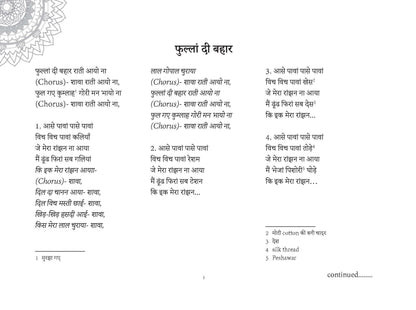 फुल्लां दी बहार
फुल्लां दी बहार राती आयो ना
(Chorus)- शावा राती आयो ना,
फुल गए कुम्लाह¹ गोरी मन भायो ना
(Chorus)- शावा राती आयो ना,
1. आसे पावां पासे पावां
विच विच पावां कलियाँ
जे मेरा रांझन ना आया
मैं ढूंढ फिरां सब गलियां
कि इक मेरा रांझन आया-
(Chorus)- शावा,
दिल दा चानन आया- शावा,
दिल विच मस्ती छाई- शावा,
खिड़-खिड़ हसदी आई- शावा,
किस मेरा लाल चुराया- शावा,
1 मुरझा गए
लाल गोपाल चुराया
(Chorus)- शावा राती आयो ना,
फुल्लां दी बहार राती आयो ना
(Chorus)- शावा राती आयो ना,
फुल गए कुम्लाह गोरी मन भायो ना
(Chorus)- शावा राती आयो ना,
2. आसे पावां पासे पावां
विच विच पावां रेशम
जे मेरा रांझन ना आया
मैं ढूंढ फिरां सब टेशन
कि इक मेरा रांझन...
3. आसे पावां पासे पावां
विच विच पावां खेस²
जे मेरा रांझन ना आया
मैं ढूंढ फिरां सब देस³
कि इक मेरा रांझन...
4. आसे पावां पासे पावां
विच विच पावां तोड़े⁴
जे मेरा रांझन ना आया
मैं भेजां पिशोरी⁵ घोड़े
कि इक मेरा रांझन...
2 मोटी cotton की बनी चादर
3 देश
4 silk thread
5 Peshawar
1
continued.......